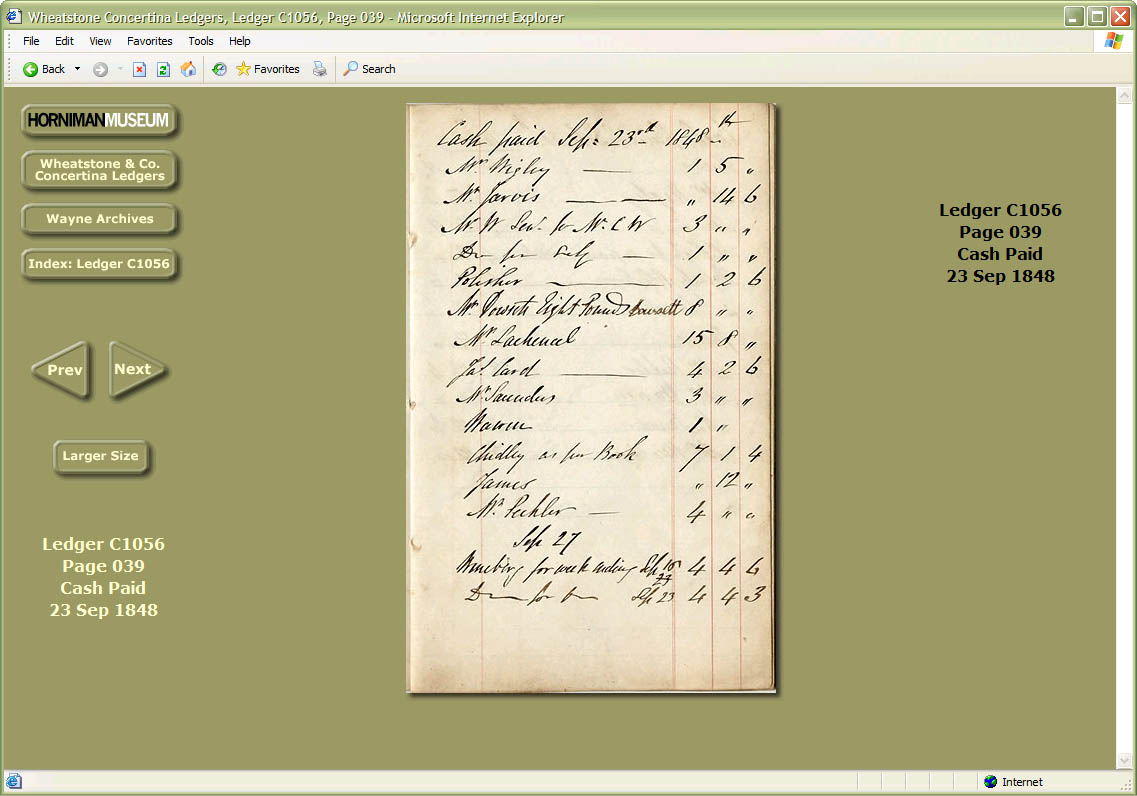 Wheatstone Concertina Ledgers, Ledger C1056, Page 039 - Microsoft Internet Explorer
File Edit View Favorites Tools Help
Back Favorites Search
HORNIMANMUSEUM
Wheatstone & Co.
Concertina Ledgers
Wayne Archives
Index: Ledger C1056
Prev Next
Larger Size
Ledger C1056
Page 039
Cash Paid
23 Sep 1848
Cash paid Sep: 23rd 1848
Mr Wigley — 1 5 "
Mr Jarvis — — " 14 6
Mr W Senr. for Mr. C W 3 " "
Do for Self — 1 " "
Polisher — 1 2 6
Mr Dowsett Eight Pounds Dowsett 8 " "
Mr Lachenal 15 8 "
Jas. Card — 4 2 6
Mr Saunders 3 " "
1 "
Chidley as per Book 7 1 4
James " 12 "
Mr. Pechler — 4 " "
Sep 27
for week ending Sep 16 4 4 6
23
Do for Do Sep 23 4 4 3
Ledger C1056
Page 039
Cash Paid
23 Sep 1848
Internet